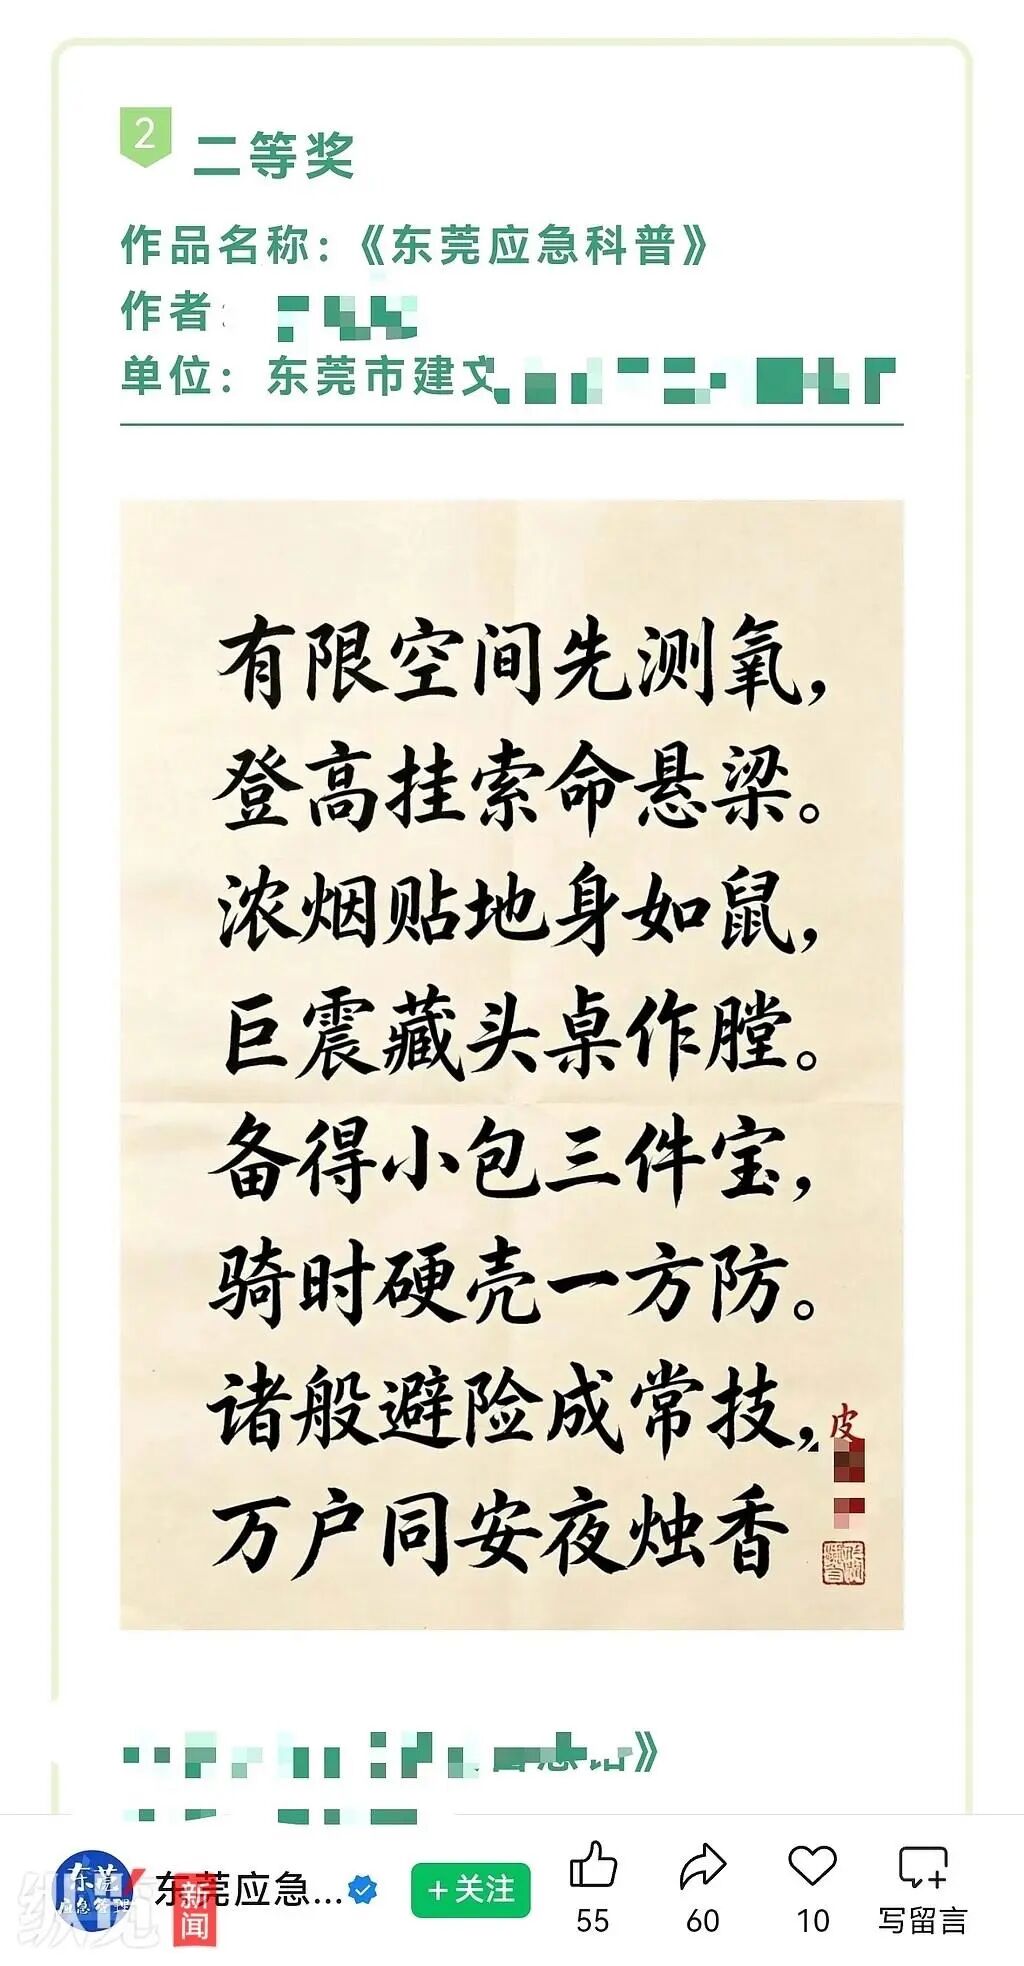 2
二等奖
作品名称：《东莞应急科普》
作者：
单位：东莞市建文
有限空间先测氧，
登高挂索命悬梁。
浓烟贴地身如鼠，
巨震藏头桌作膛。
备得小包三件宝，
骑时硬壳一方防。
诸般避险成常技，
万户同安夜烛香
皮
》
东莞
应急管理
东莞应急...
+关注
55
60
10
写留言
纵览
新闻